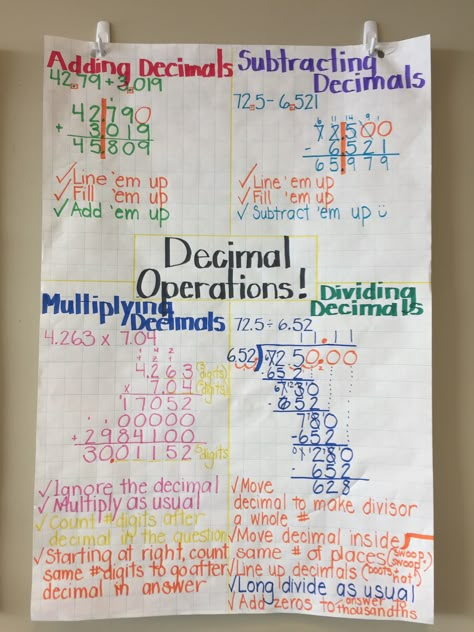 Adding Decimals
42.79 + 3.019
42.790
+ 3.019
45.809
✓ Line 'em up
✓ Fill 'em up
✓ Add 'em up
Subtracting
Decimals
72.5 - 6.521
72.500
- 6.521
65.979
✓ Line 'em up
✓ Fill 'em up
✓ Subtract 'em up
Decimal
Operations!
Multiplying
Decimals
4.263 x 7.04
4.263
x 7.04
17052
00000
+ 2984100
30.01152
✓ Ignore the decimal
✓ Multiply as usual
✓ Count # digits after
decimal in the question
✓ Starting at right, count
same # digits to go after
decimal in answer
Dividing
Decimals
72.5 ÷ 6.52
11.11
652 7250.00
- 652
730
- 652
780
- 652
1280
- 652
628
✓ Move
decimal to make divisor
a whole #
✓ Move decimal inside
same # of places ("swoop swoop")
✓ Line up decimals ("boots + hat")
✓ Long divide as usual
✓ Add zeros to answer to
thousandths